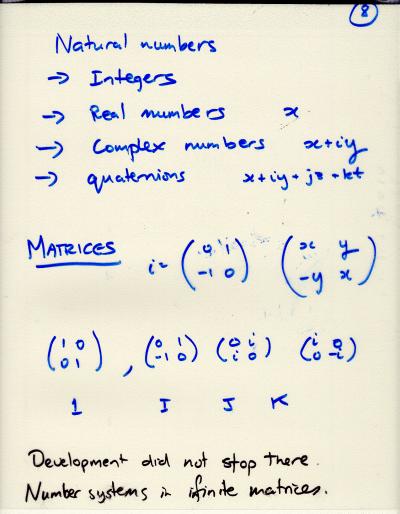 8
Natural numbers
→ Integers
→ Real numbers x
→ Complex numbers x+iy
→ quaternions x+iy+jz+kt
MATRICES i = ( 0 1 / -1 0 ) ( x y / -y x )
( 1 0 / 0 1 ) , ( 0 1 / -1 0 ) ( 0 i / i 0 ) ( i 0 / 0 -i )
1 I J K
Development did not stop there.
Number systems in infinite matrices.